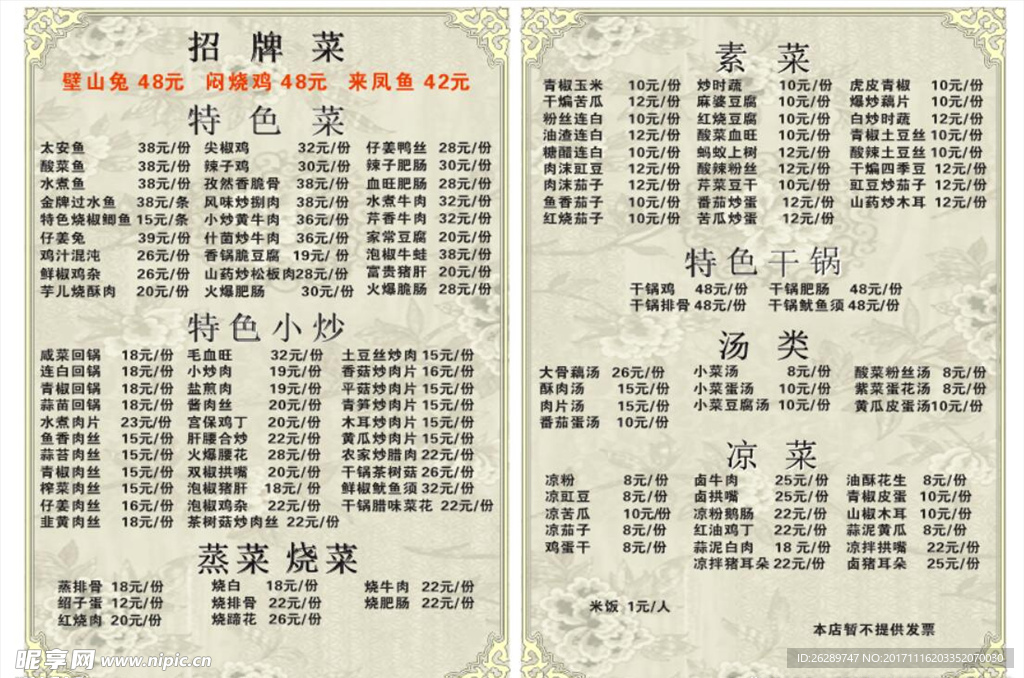 招牌菜
璧山兔 48元 闷烧鸡 48元 来凤鱼 42元
特色菜
太安鱼 38元/份 尖椒鸡 32元/份 仔姜鸭丝 28元/份
酸菜鱼 38元/份 辣子鸡 30元/份 辣子肥肠 30元/份
水煮鱼 38元/份 孜然香脆骨 38元/份 血旺肥肠 28元/份
金牌过水鱼 38元/条 风味炒捌肉 38元/份 水煮牛肉 32元/份
特色烧椒鲫鱼 15元/条 小炒黄牛肉 36元/份 芹香牛肉 32元/份
仔姜兔 39元/份 什菌炒牛肉 36元/份 家常豆腐 20元/份
鸡汁混沌 26元/份 香锅脆豆腐 19元/份 泡椒牛蛙 38元/份
鲜椒鸡杂 26元/份 山药炒松板肉28元/份 富贵猪肝 20元/份
芋儿烧酥肉 20元/份 火爆肥肠 30元/份 火爆脆肠 28元/份
特色小炒
咸菜回锅 18元/份 毛血旺 32元/份 土豆丝炒肉 15元/份
连白回锅 18元/份 小炒肉 19元/份 香菇炒肉片 16元/份
青椒回锅 18元/份 盐煎肉 19元/份 平菇炒肉片 15元/份
蒜苗回锅 18元/份 酱肉丝 20元/份 青笋炒肉片 15元/份
水煮肉片 23元/份 宫保鸡丁 20元/份 木耳炒肉片 15元/份
鱼香肉丝 15元/份 肝腰合炒 22元/份 黄瓜炒肉片 15元/份
蒜苔肉丝 15元/份 火爆腰花 28元/份 农家炒腊肉 22元/份
青椒肉丝 15元/份 双椒拱嘴 20元/份 干锅茶树菇 26元/份
榨菜肉丝 15元/份 泡椒猪肝 18元/份 鲜椒鱿鱼须 32元/份
仔姜肉丝 16元/份 泡椒鸡杂 22元/份 干锅腊味菜花 22元/份
韭黄肉丝 18元/份 茶树菇炒肉丝 22元/份
蒸菜 烧菜
蒸排骨 18元/份 烧白 18元/份 烧牛肉 22元/份
绍子蛋 12元/份 烧排骨 22元/份 烧肥肠 22元/份
红烧肉 20元/份 烧蹄花 26元/份
素菜
青椒玉米 10元/份 炒时蔬 10元/份 虎皮青椒 10元/份
干煸苦瓜 12元/份 麻婆豆腐 10元/份 爆炒藕片 10元/份
粉丝连白 10元/份 红烧豆腐 10元/份 白炒时蔬 12元/份
油渣连白 12元/份 酸菜血旺 10元/份 青椒土豆丝 10元/份
糖醋连白 10元/份 蚂蚁上树 12元/份 酸辣土豆丝 10元/份
肉沫豇豆 12元/份 酸辣粉丝 12元/份 干煸四季豆 12元/份
肉沫茄子 12元/份 芹菜豆干 10元/份 豇豆炒茄子 12元/份
鱼香茄子 10元/份 番茄炒蛋 12元/份 山药炒木耳 12元/份
红烧茄子 10元/份 苦瓜炒蛋 12元/份
特色干锅
干锅鸡 48元/份 干锅肥肠 48元/份
干锅排骨 48元/份 干锅鱿鱼须 48元/份
汤类
大骨藕汤 26元/份 小菜汤 8元/份 酸菜粉丝汤 8元/份
酥肉汤 15元/份 小菜蛋汤 10元/份 紫菜蛋花汤 8元/份
肉片汤 15元/份 小菜豆腐汤 10元/份 黄瓜皮蛋汤10元/份
番茄蛋汤 10元/份
凉菜
凉粉 8元/份 卤牛肉 25元/份 油酥花生 8元/份
凉豇豆 8元/份 卤拱嘴 25元/份 青椒皮蛋 10元/份
凉苦瓜 10元/份 凉粉鹅肠 22元/份 山椒木耳 10元/份
凉茄子 8元/份 红油鸡丁 22元/份 蒜泥黄瓜 8元/份
鸡蛋干 8元/份 蒜泥白肉 18元/份 凉拌拱嘴 22元/份
凉拌猪耳朵 22元/份 卤猪耳朵 25元/份
米饭 1元/人
本店暂不提供发票
昵享网 www.nipic.cn
ID:26289747 NO:20171116203352070030